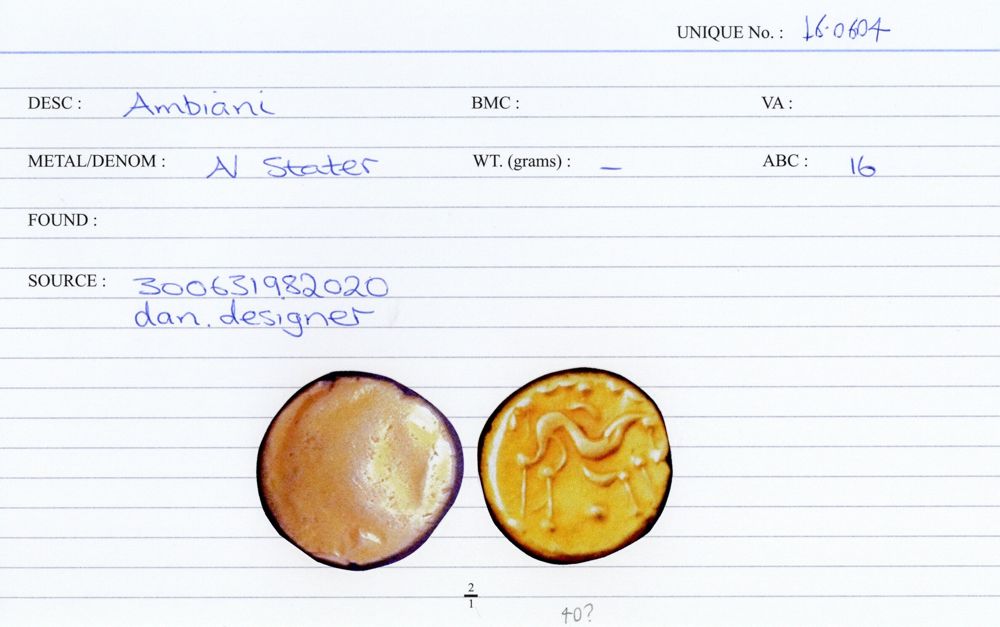 UNIQUE No. : 16.0604
DESC : Ambiani BMC : VA :
METAL/DENOM : N Stater WT. (grams) : – ABC : 16
FOUND :
SOURCE : 300631982020
dan.designer
2
1
40?